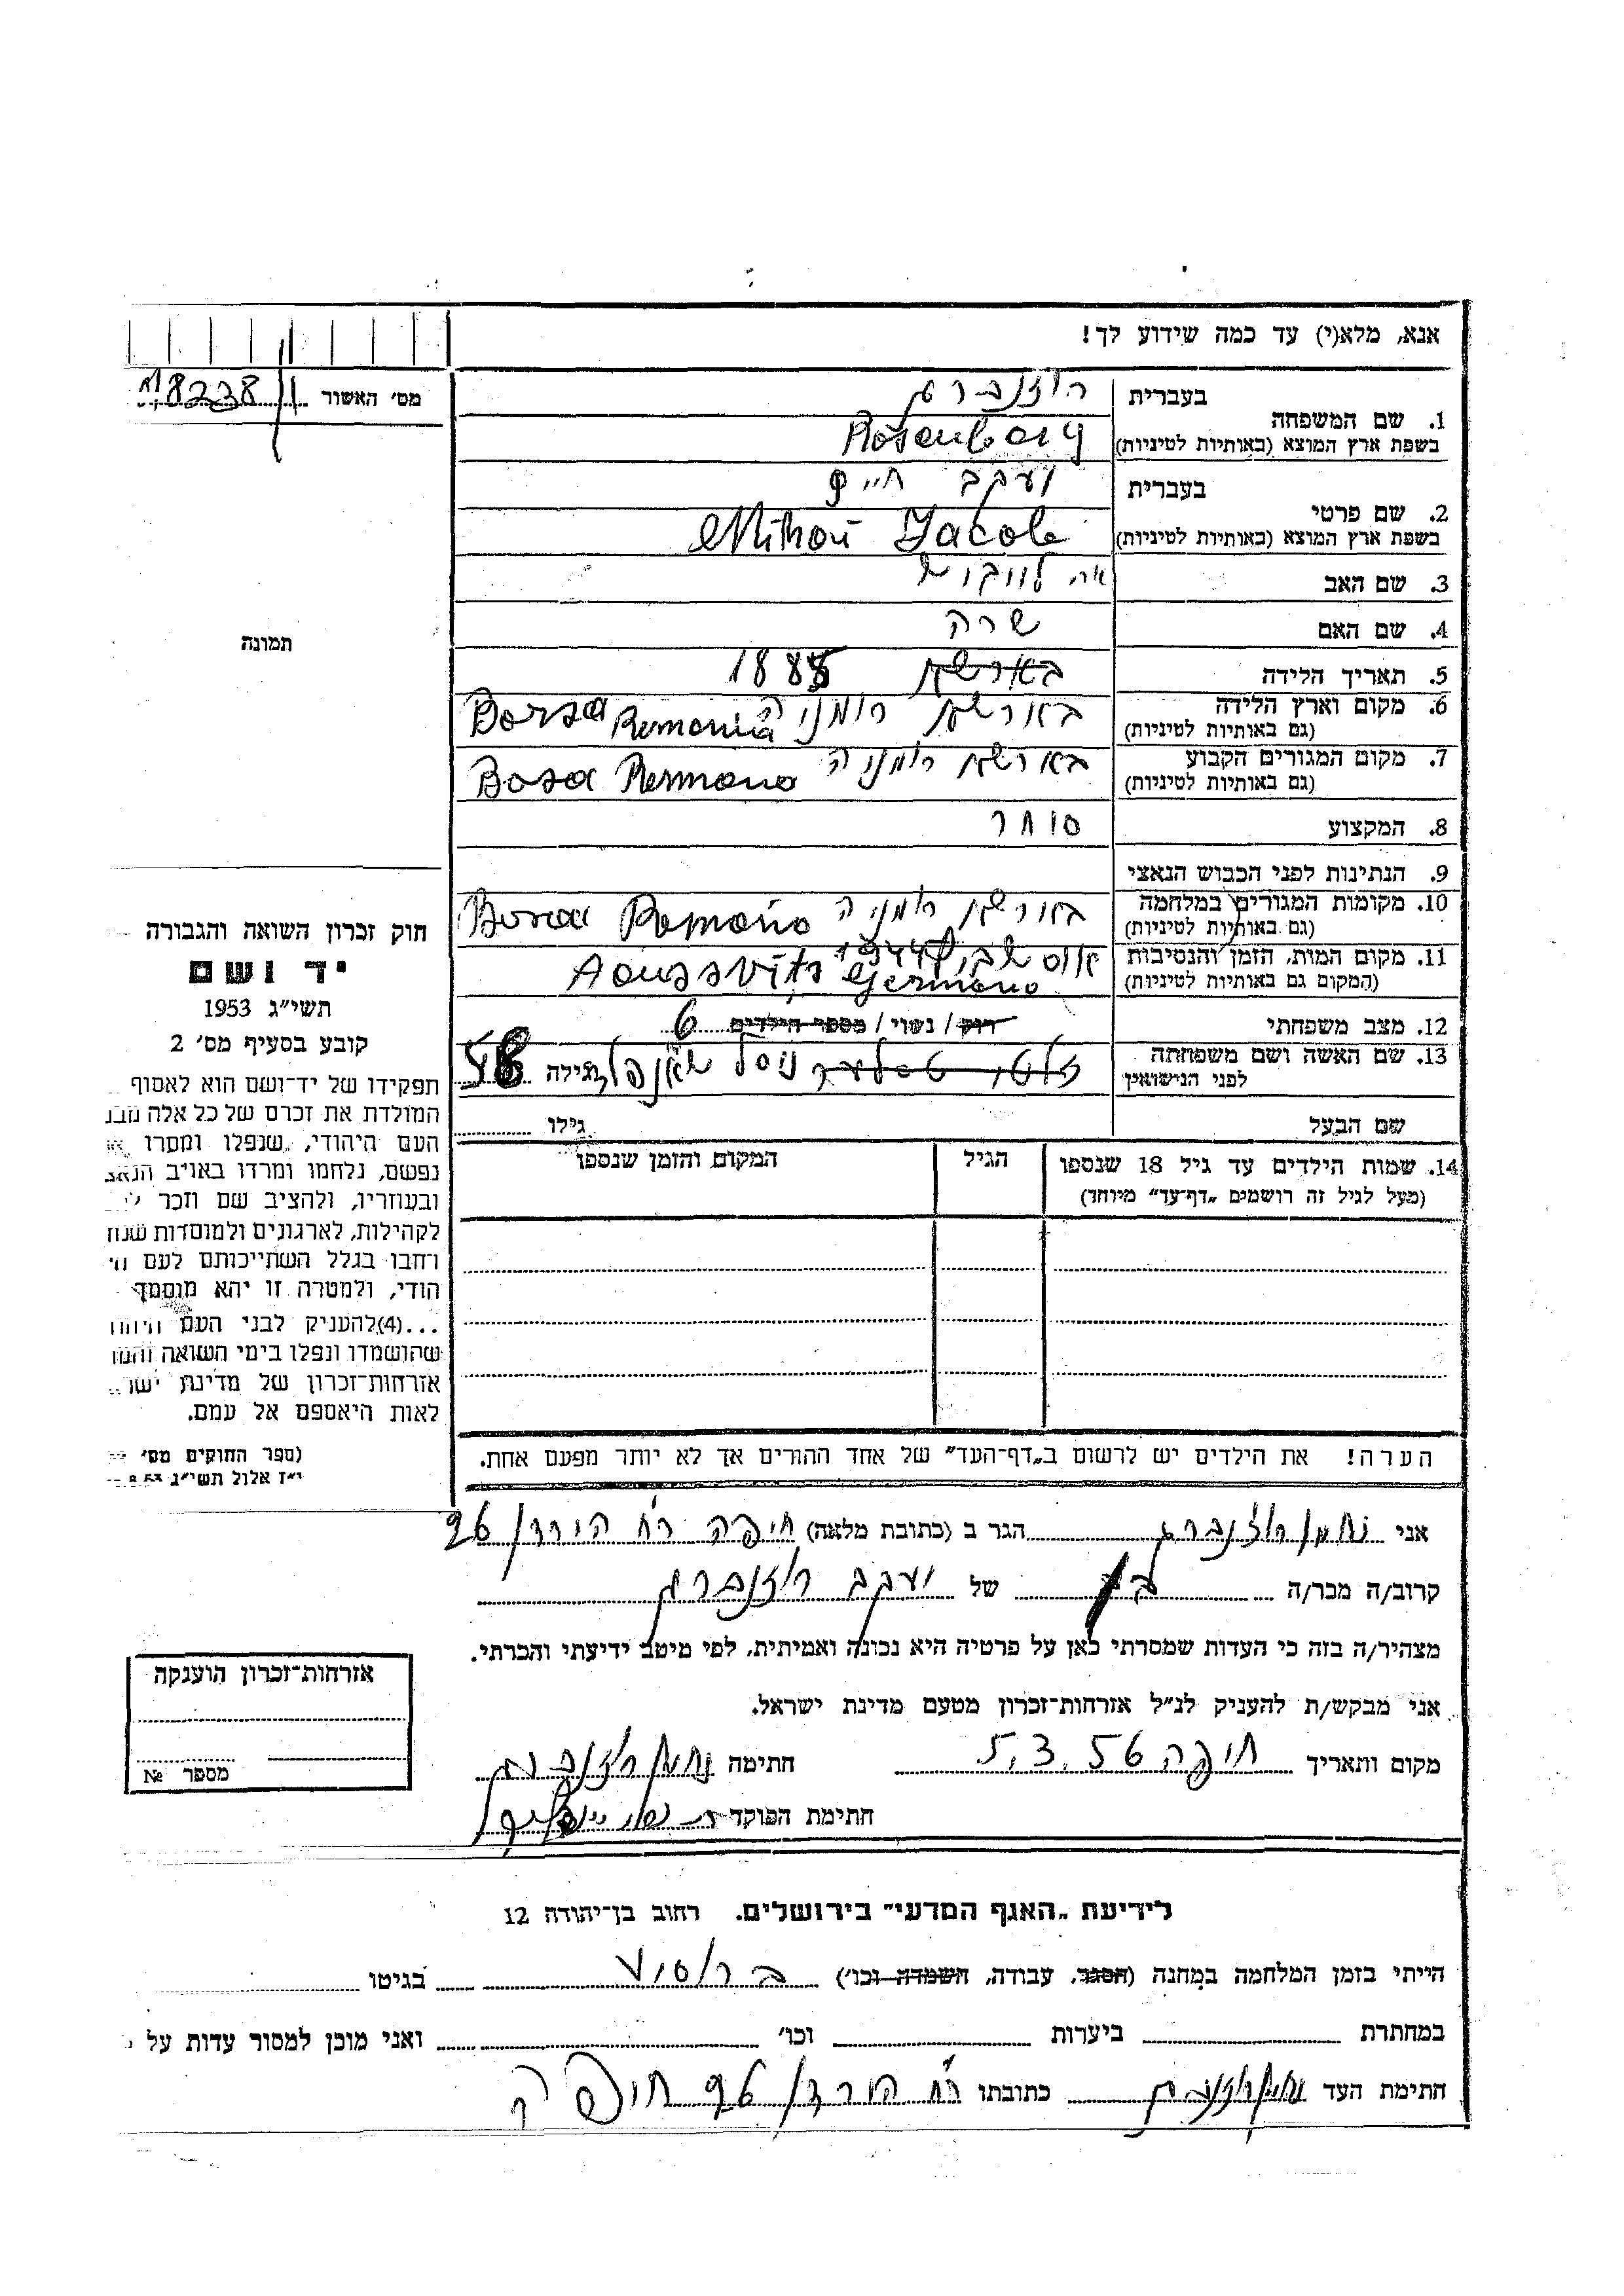 אנא, מלא(י) עד כמה שידוע לך!
מס׳ האשור 18238
1. שם המשפחה בעברית רוזנברג
בשפת ארץ המוצא (באותיות לטיניות) Rosenberg
2. שם פרטי בעברית יעקב חיים
בשפת ארץ המוצא (באותיות לטיניות) Jacob
3. שם האב
4. שם האם שרה
5. תאריך הלידה בארשא 1885
6. מקום וארץ הלידה בארשא רומניה Borsa Romania
(גם באותיות לטיניות)
7. מקום המגורים הקבוע בארשא רומניה Bosa Remano
(גם באותיות לטיניות)
8. המקצוע סוחר
9. הנתינות לפני הכבוש הנאצי
10. מקומות המגורים במלחמה בורשא רומניה Remanio
(גם באותיות לטיניות)
11. מקום המות, הזמן והנסיבות 1944
(המקום גם באותיות לטיניות) Germano
12. מצב משפחתי רווק / נשוי / מספר הילדים 6
13. שם האשה ושם משפחתה
לפני הנישואין גילה 58
שם הבעל גילו
14. שמות הילדים עד גיל 18 שנספו הגיל המקום והזמן שנספו
(מעל לגיל זה רושמים „דף־עד״ מיוחד)
הערה! את הילדים יש לרשום ב„דף־העד״ של אחד ההורים אך לא יותר מפעם אחת.
תמונה
חוק זכרון השואה והגבורה
יד ושם
תשי״ג 1953
קובע בסעיף מס׳ 2
תפקידו של יד־ושם הוא לאסוף
המולדת את זכרם של כל אלה מבנ
העם היהודי, שנפלו ומסרו
נפשם, נלחמו ומרדו באויב הנאצ
ובעוזריו, ולהציב שם וזכר
לקהילות, לארגונים ולמוסדות שנח
רחבו בגלל השתייכותם לעם הי
הודי, ולמטרה זו יהא מוסמך
...(4)להעניק לבני העם היהוד
שהושמדו ונפלו בימי השואה והמר
אזרחות־זכרון של מדינת ישר
לאות היאספם אל עמם.
(ספר החוקים מס׳
י״ז אלול תשי״ג 8.53
אני נחמן רוזנברג הגר ב (כתובת מלאה) חיפה רח הירדן 26
קרוב/ה מכר/ה בן של יעקב רוזנברג
מצהיר/ה בזה כי העדות שמסרתי כאן על פרטיה היא נכונה ואמיתית, לפי מיטב ידיעתי והכרתי.
אני מבקש/ת להעניק לנ״ל אזרחות־זכרון מטעם מדינת ישראל.
מקום ותאריך חיפה 5.3.56 חתימה נחמן רוזנברג
חתימת הפוקד
אזרחות־זכרון הוענקה
מספר №
לידיעת „האגף המדעי״ בירושלים. רחוב בן־יהודה 12
הייתי בזמן המלחמה במחנה (הסגר, עבודה, השמדה וכו׳) ברוסיע בגיטו
במחתרת ביערות וכו׳ ואני מוכן למסור עדות על
חתימת העד נחמן רוזנברג כתובתו רח הירדן 26 חיפה